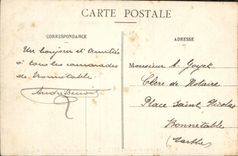 CARTE POSTALE
CORRESPONDANCE
ADRESSE
Un bonjour et Amitiés
à tous les camarades
de Bonnétable
Monsieur A. Goyet
Clerc de Notaire
Place Saint Nicolas
Bonnétable
(Sarthe)